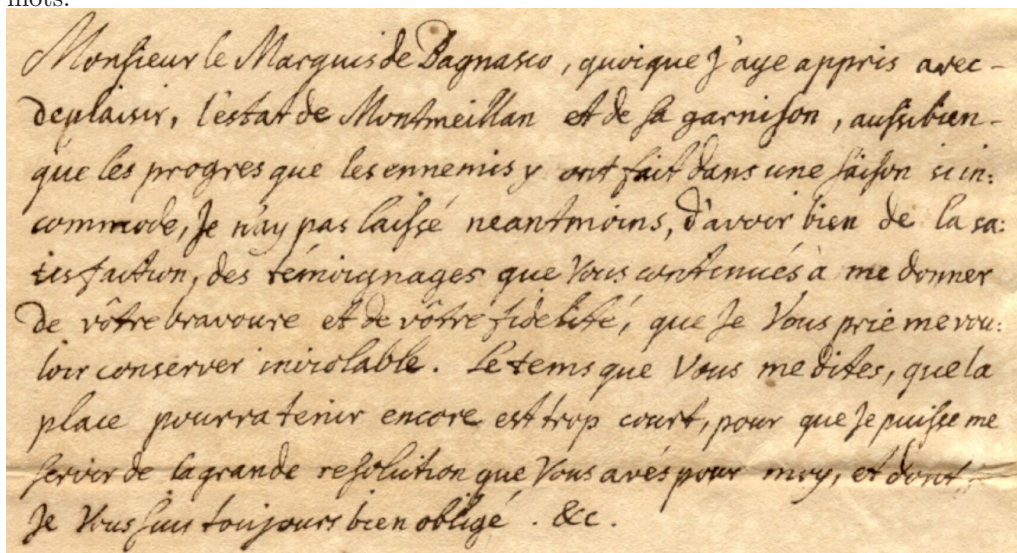 mots.
Monsieur le Marquis de Bagnasco, quoique J'aye appris avec-
deplaisir, l'estat de Montmeillan et de sa garnison, aussibien-
que les progres que les ennemis y ont fait dans une saison si in:
commode, Je n'ay pas laissé neantmoins, d'avoir bien de la sa:
tisfaction, des témoignages que Vous continués à me donner
de vôtre bravoure et de vôtre fidelité, que Je Vous prie me vou:
loir conserver inviolable. Le tems que Vous me dites, que la
place pourra tenir encore est trop court, pour que Je puisse me
servir de la grande resolution que Vous avés pour moy, et dont-
Je Vous suis toujours bien obligé. &c.